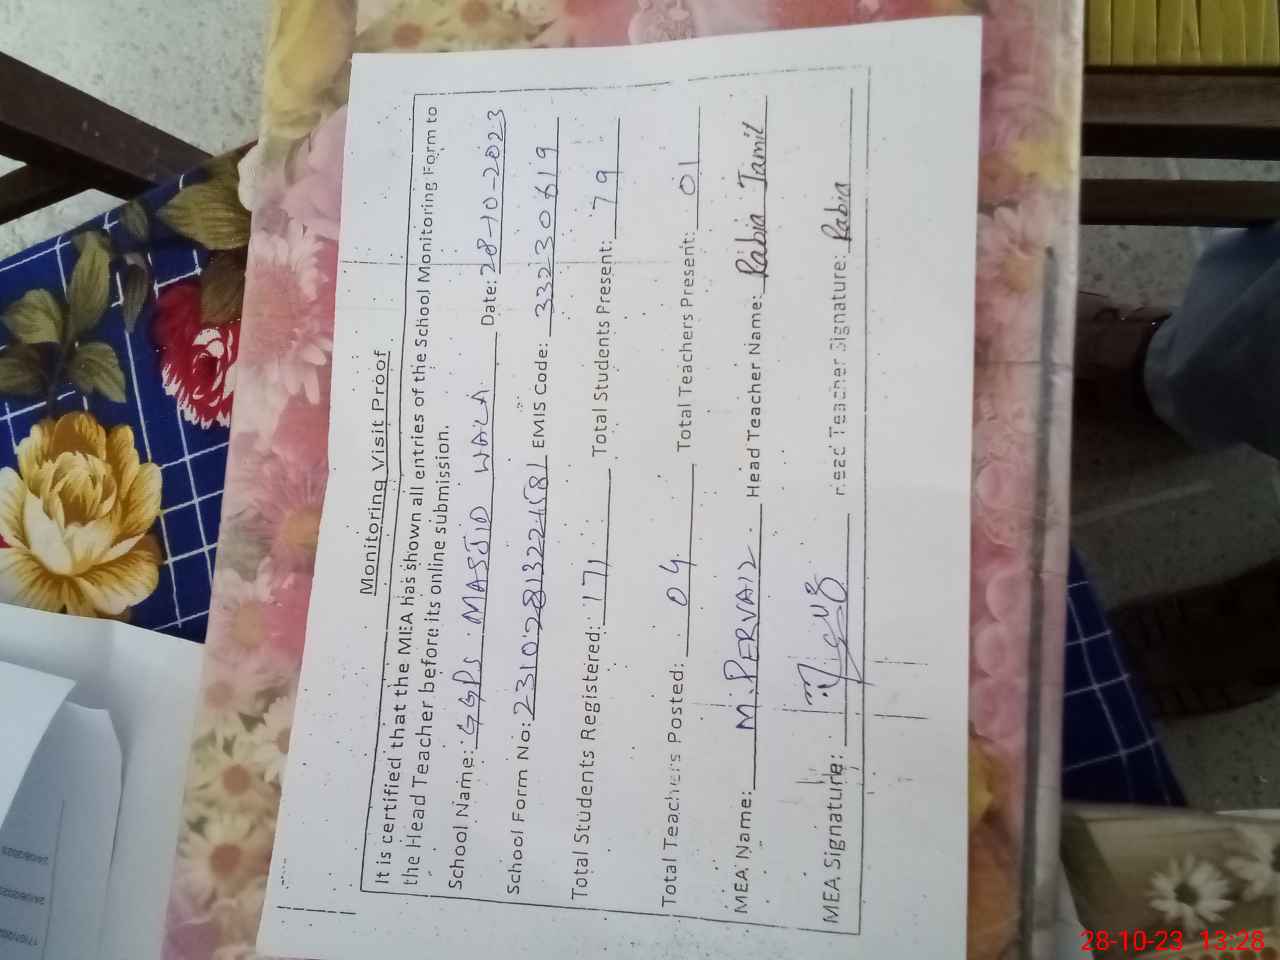 Monitoring Visit Proof
It is certified that the MEA has shown all entries of the School Monitoring Form to
the Head Teacher before its online submission.
School Name: GGPS MASJID WALA Date: 28-10-2023
School Form No: EMIS Code: 33230619
Total Students Registered: 171 Total Students Present: 79
Total Teachers Posted: 04 Total Teachers Present: 01
MEA Name: M. PERVAIZ Head Teacher Name: Rabia Jamil
MEA Signature: Head Teacher Signature: Rabia
28-10-23 13:28